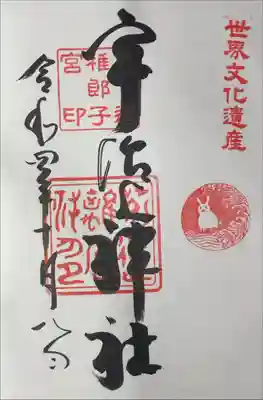 世界文化遺産
宇治上神社
稚郎子
宮印
令和四年十月八日